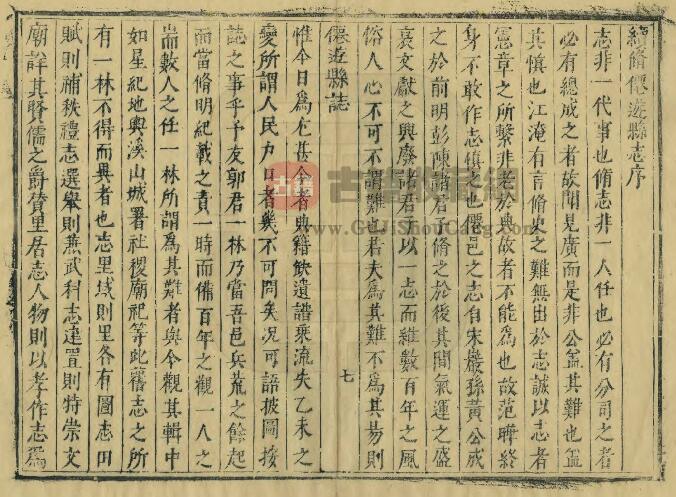 續脩僊遊縣志序
志非一代事也脩志非一人任也必有分司之者
必有總成之者故聞見廣而是非公盖其難也盖
其慎也江淹有言脩史之難無出於志誠以志者
憲章之所繫非老於典故者不能為也故范曄終
身不敢作志慎之也僊邑之志自宋嚴孫黃公成
之於前明彭陳諸君子脩之於後其間氣運之盛
衰文獻之興廢諸君子以一志而維數百年之風
俗人心不可不謂難也若夫為其難不為其易則
僊遊縣誌
七
惟今日為尤甚今者典籍缺遺譜乗流失乙未之
變所謂人民力口者幾不可問矣况可語披圖按
誌之事乎予友郭君一林乃當吾邑兵荒之餘起
而當脩明紀載之責一時而備百年之觀一人之
耑數人之任一林所謂為其難者與今觀其輯中
如星紀地輿溪山城署社稷廟祀等此舊志之所
有一林不得而異者也志里域則里各有圖志田
賦則補秩禮志選舉則燕武科志建置則特崇文
廟詳其賢儒之爵贊里居志人物則以孝作志為
古籍
www.GuJiShouCang.com